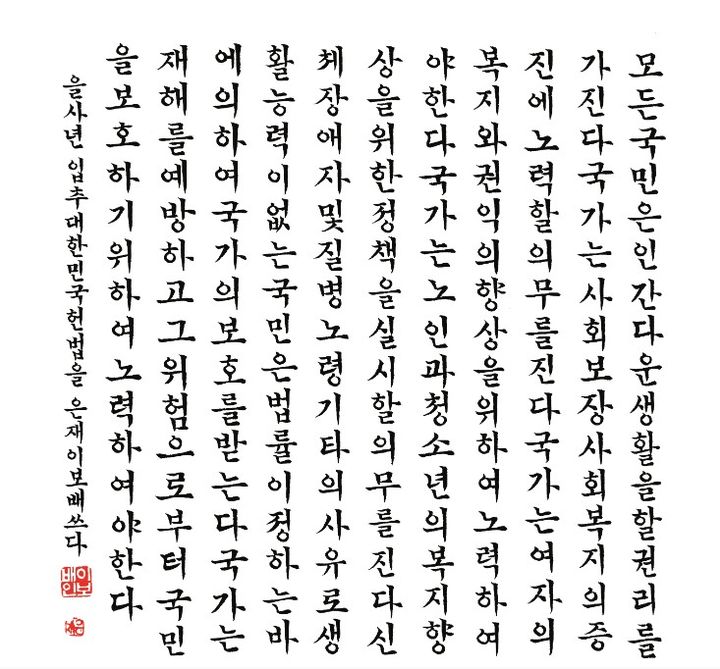 모든국민은인간다운생활을할권리를
가진다국가는사회보장사회복지의증
진에노력할의무를진다국가는여자의
복지와권익의향상을위하여노력하여
야한다국가는노인과청소년의복지향
상을위한정책을실시할의무를진다신
체장애자및질병노령기타의사유로생
활능력이없는국민은법률이정하는바
에의하여국가의보호를받는다국가는
재해를예방하고그위험으로부터국민
을보호하기위하여노력하여야한다
을사년 입추대한민국헌법을 은재이보배쓰다
이보배인